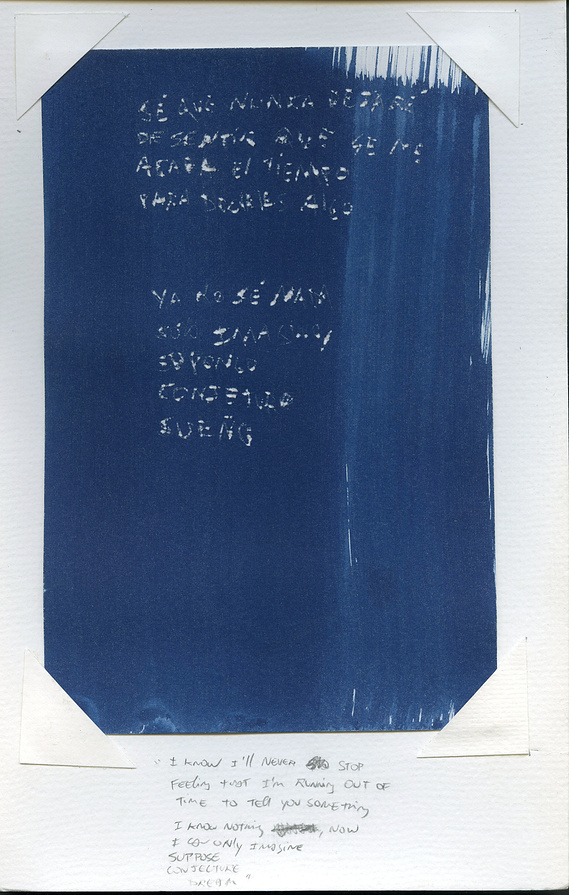 SÉ QUE NUNCA DEJARÉ
DE SENTIR QUE SE ME
ACABA El TIEMPO
PARA DECIRLES AlGO
YA NO SÉ NADA
SÓLO IMAGINO
SUPONGO
CONJETURO
SUEÑO
" I KNOW I'll NEVER STOP
FEELING that I'm RUNNING OUT OF
TIME TO TEll YOU SOMETHING
I KNOW NOTHING , NOW
I CAN ONLY IMAGINE
SUPPOSE
CONJECTURE
DREAM "